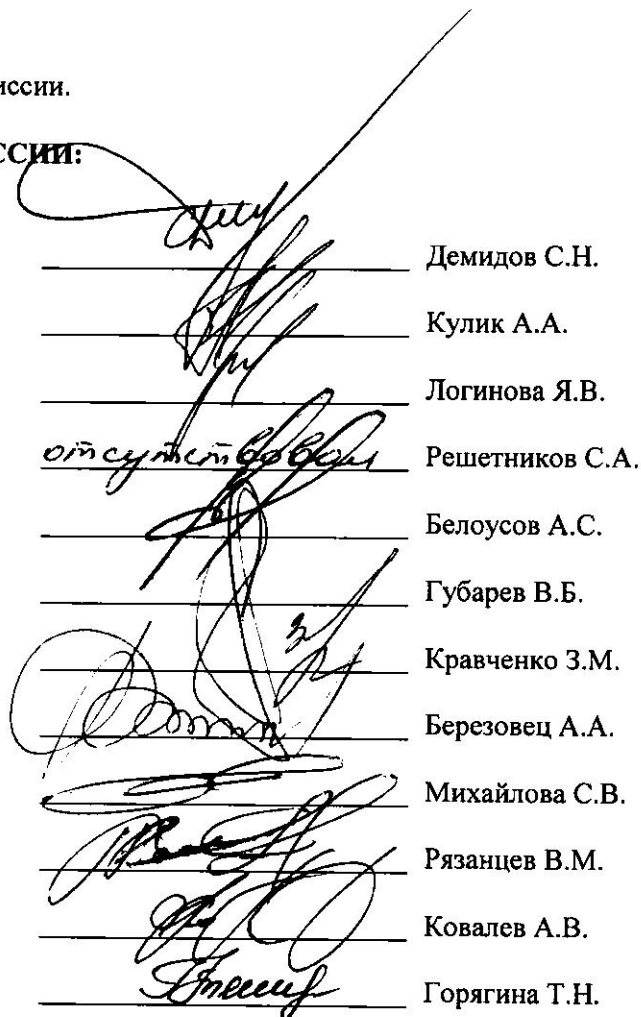 иссии.
ССИИ:
Демидов С.Н.
Кулик А.А.
Логинова Я.В.
отсутствовал Решетников С.А.
Белоусов А.С.
Губарев В.Б.
Кравченко З.М.
Березовец А.А.
Михайлова С.В.
Рязанцев В.М.
Ковалев А.В.
Горягина Т.Н.